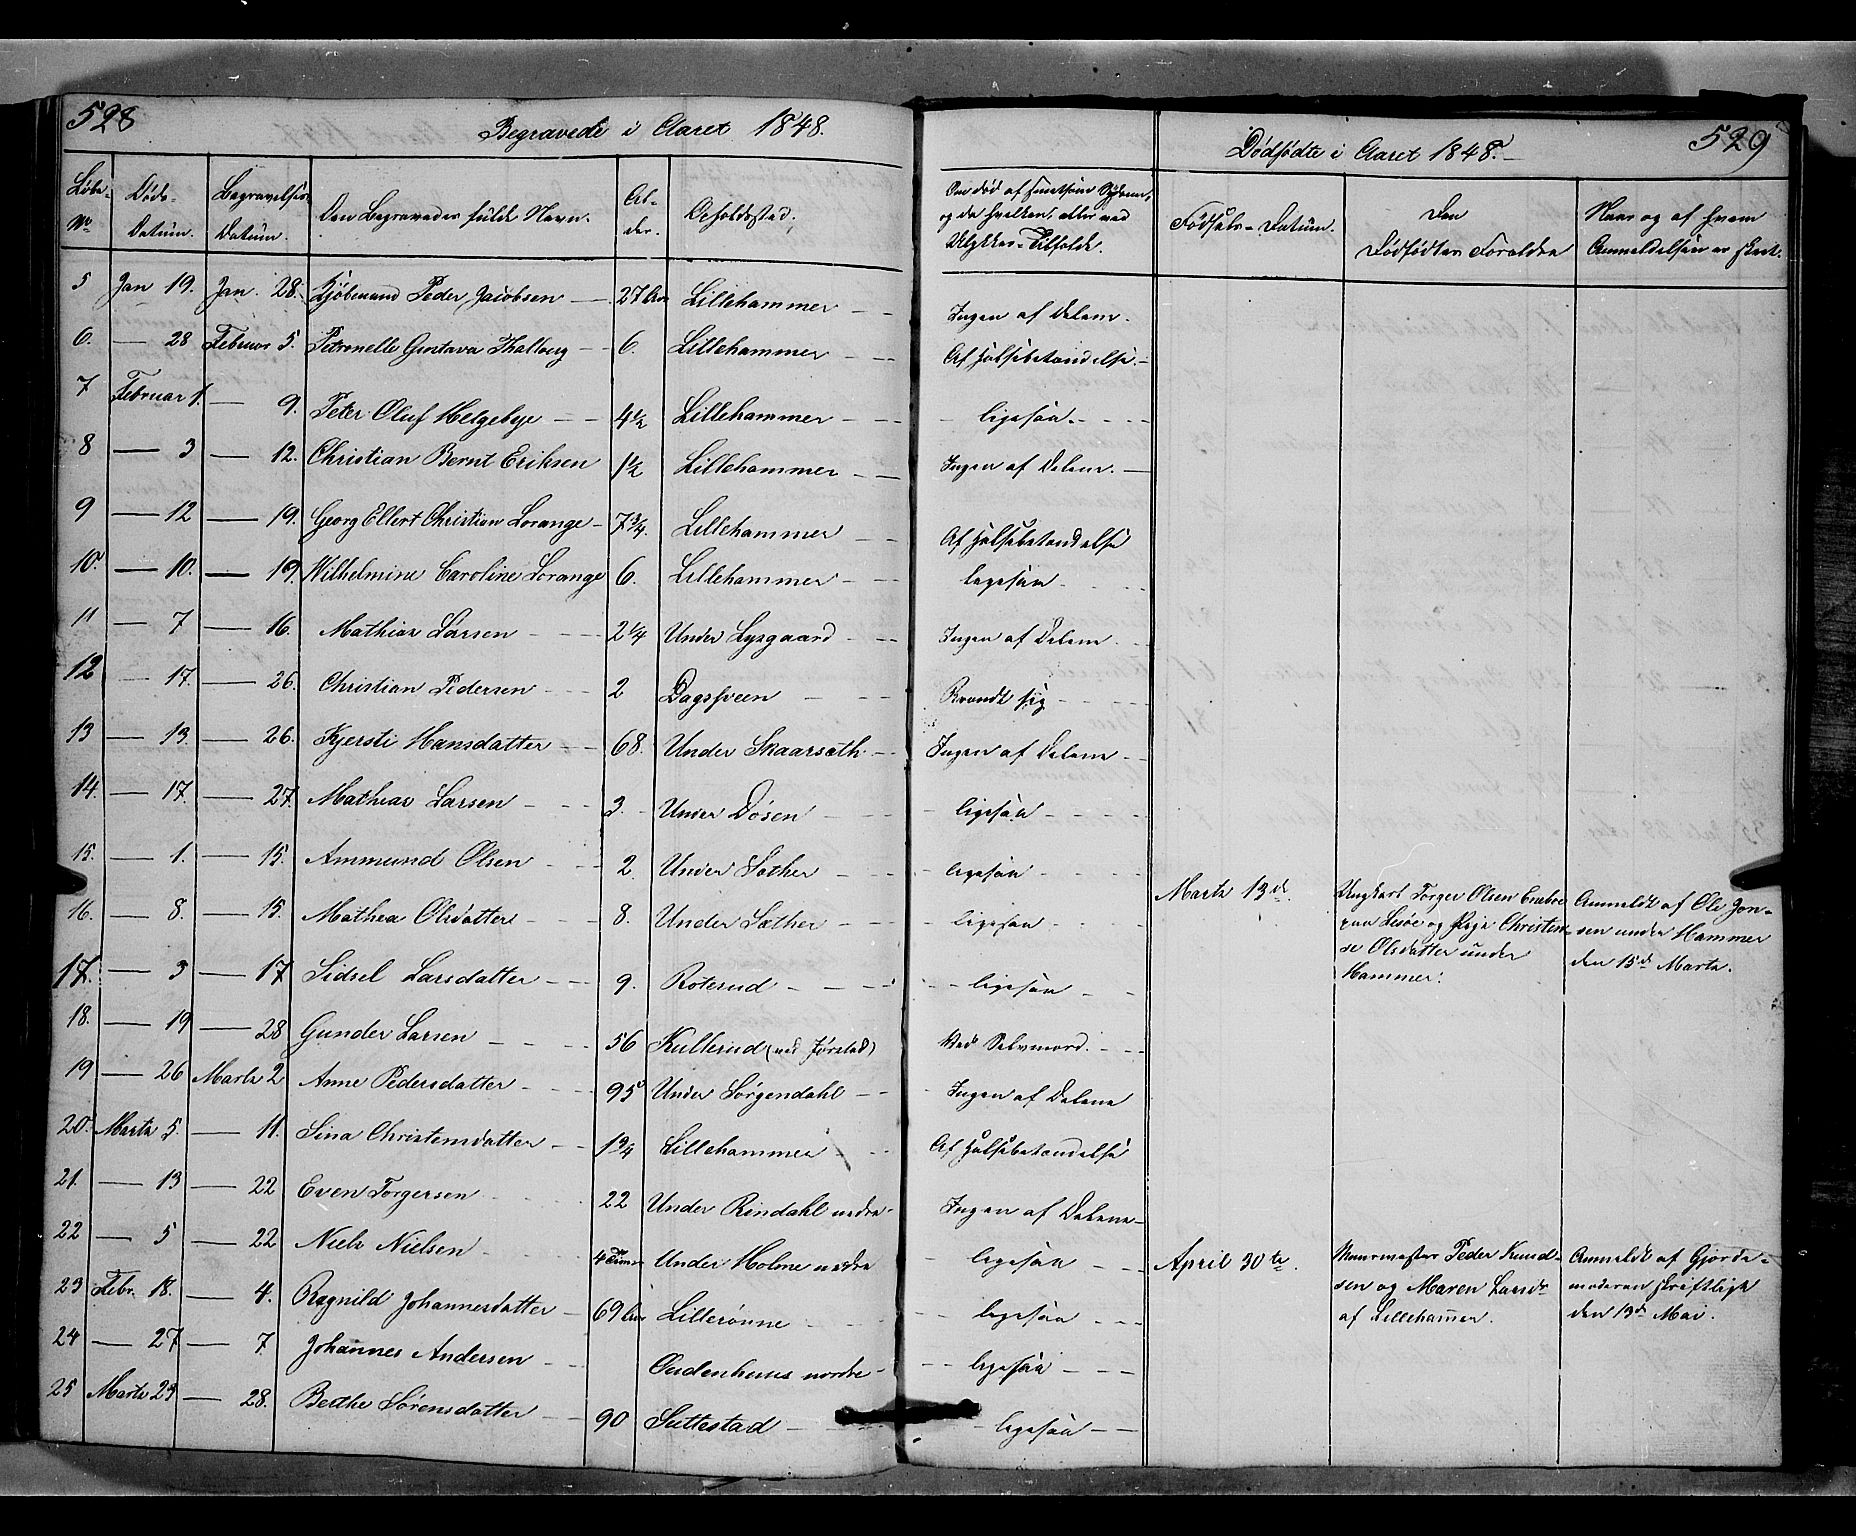 528
Begravede i Aaret 1848.
Løbe-No. Døds-Datum. Begravelses Datum. Den Begravedes fulde Navn. Al-der. Opholdssted.
5 Jan 19. Jan. 28. Kjøbmand Peder Jacobsen — 27 Aar Lillehammer — —
6. — 28 Februar 5. Petronelle Gustava Thallaug — 6. Lillehammer — —
7 Februar 1. — 9. Peter Oluf Helgebye — — 4 1/2 Lillehammer — —
8 — 3 — 12. Christian Bernt Eriksen 1 1/2 Lillehammer — —
9 — 12 — 19. Georg Ellert Christian Lorange — 7 3/4. Lillehammer — —
10. — 10. — 19. Wilhelmine Caroline Lorange 6. Lillehammer — —
11 — 7 — 16. Mathias Larsen — — 2 1/4 Under Lysgaard — —
12 — 17. — 26. Christian Pedersen — — 2 Dagsveen — —
13 — 13. — 26. Kjersti Hansdatter — — 68. Under Skaarseth — —
14. — 17. — 27 Mathias Larsen — — 3. Under Dösen — —
15. — 1. — 15. Ammund Olsen — — 2. Under Sother — —
16. — 8. — 15. Mathea Olsdatter — — 8. Under Sother — —
17. — 3 — 17 Sidsel Larsdatter — — 9. Roterud — — —
18. — 19 — 28 Gunder Larsen — — 56 Kullerud (ved Jørstad)
19 — 26 Marts 2 Anne Pedersdatter — — 95 Under Sørgendahl — —
20. Marts 5. — 11. Sina Christensdatter — — 1 3/4 Lillehammer — —
21. — 13 — 22 Even Torgersen — — 22 Under Rindahl nedre —
22 — 5 — 22 Niels Nielsen — — 4 Under Holme nedre
23 Febr. 18. — 4. Ragnild Johannesdatter — 69 Aar Lillerønne — —
24 — 27 — 7. Johannes Andersen — — nordre —
25 Marts 23 — 28. Berthe Sørensdatter — 90 Suttestad — —
529
Dødfødte i Aaret 1848. —
Om død af smitsom Sygdom,
og da hvilken, eller ved
Ulykkes-Tilfælde.
Fødsels-Datum.
Den
Dødfødtes Forældre
Naar og af hvem
Anmeldelsen er skeet.
Ingen af Delene.
Af Halsebetændelse. —
— ligesaa. — — —
Ingen af Delene. —
Af Halsebetændelse
ligesaa — — —
Ingen af Delene — —
Brændt sig — — —
Ingen af Delene — —
— ligesaa — — —
— ligesaa — — —
— ligesaa — — —
— — ligesaa — —
Ved Selvmord. — —
Ingen af Delene
Af Halsebetændelse
Ingen af Delene —
— ligesaa — —
— ligesaa — — —
— — ligesaa — — —
— ligesaa — —
Marts 13de.
Ungkarl Torger Olsen
Lesöe og Pige Christen-
se Olsdatter under
Hammer.
Anmeldt af Ole Jon-
sen under Hammer
den 15de Marts.
April 30te.
Muurmester Peder Knud-
sen og Maren Larsdr
af Lillehammer.
Anmeldt af Gjorde-
moderen skriftligt
den 13de Mai.